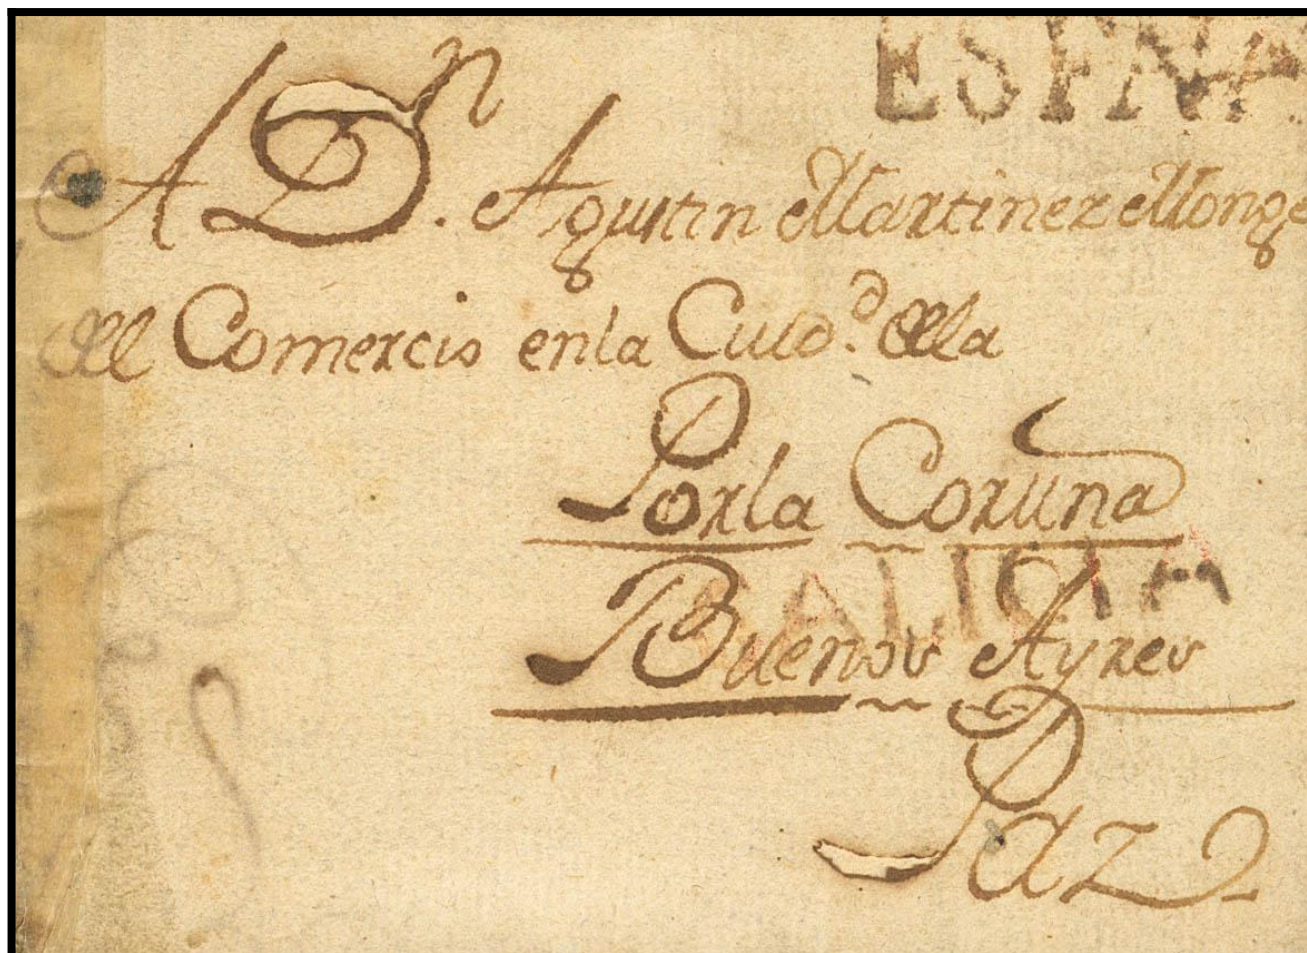 ESPAÑA
A Dn. Agustin Martinez Monge
del Comercio en la Ciud.d de la
Por la Coruña
GALICIA
Buenos Ayres
Paz